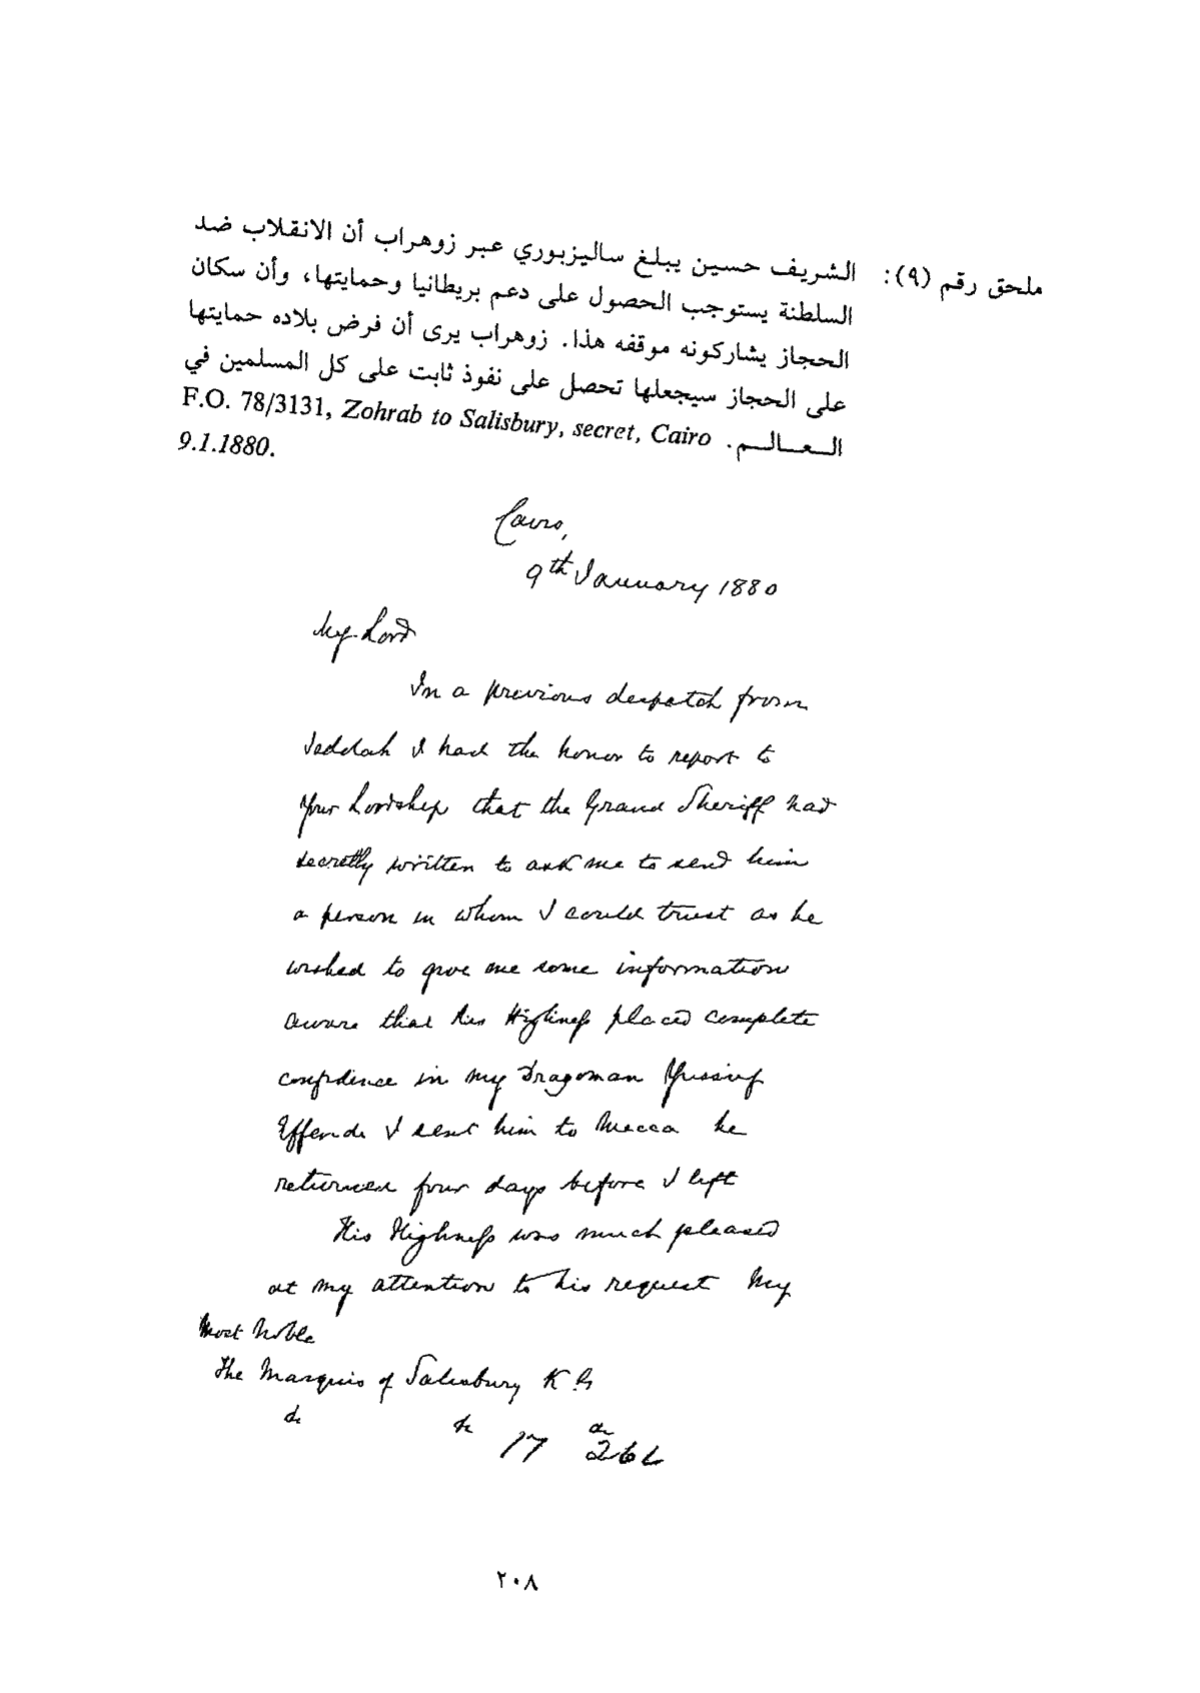 ملحق رقم (٩): الشريف حسين يبلغ ساليزبوري عبر زوهراب أن الانقلاب ضد
السلطنة يستوجب الحصول على دعم بريطانيا وحمايتها، وأن سكان
الحجاز يشاركونه موقفه هذا. زوهراب يرى أن فرض بلاده حمايتها
على الحجاز سيجعلها تحصل على نفوذ ثابت على كل المسلمين في
العالم. F.O. 78/3131, Zohrab to Salisbury, secret, Cairo
9.1.1880.
Cairo,
9th January 1880
My Lord
In a previous despatch from
Jeddah I had the honor to report to
Your Lordship that the Grand Sheriff had
secretly written to ask me to send him
a person in whom I could trust as he
wished to give me some information
aware that His Highness placed complete
confidence in my Dragoman Yussuf
Effendi I sent him to Mecca he
returned four days before I left
His Highness was much pleased
at my attention to his request My
Most Noble
The Marquis of Salisbury K G
17
٢٠٨